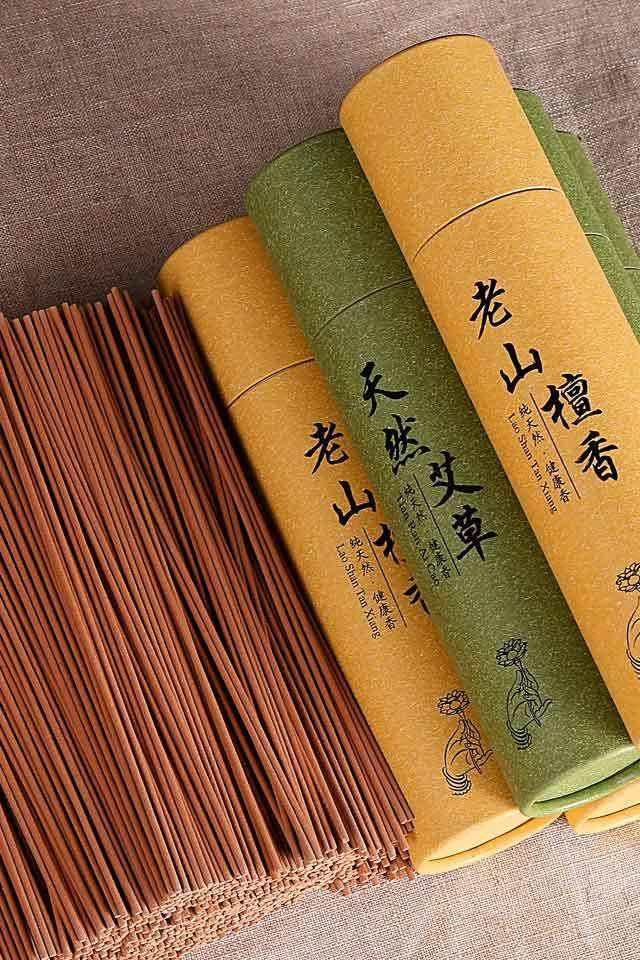 老山檀香
纯天然·健康香
Lao Shan Tan Xiang
天然艾草
纯天然·健康香
Tian Ran Ai Cao
老山
纯天然·健康香
Lao Shan Tan Xiang